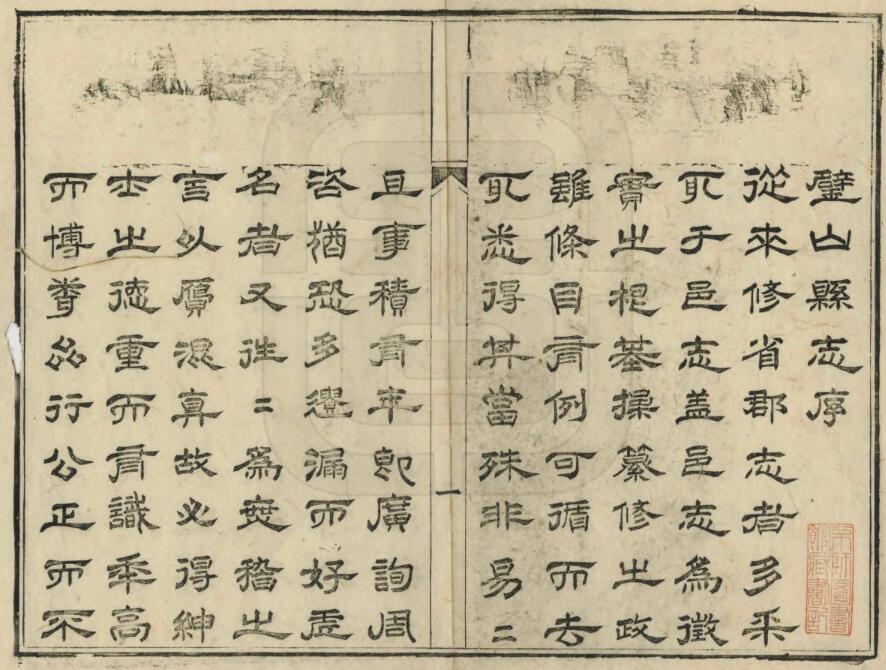 璧山縣志序
從來修省郡志者多采
取于邑志蓋邑志為徵
實之根基操纂修之政
雖條目有例可循而去
取悉得其當殊非易二
一
且事積有年即廣詢周
咨猶恐多遺漏而好虛
名者又往二為無稽之
言以贗混真故必得紳
士之德重而有識年高
而博學品行公正而不